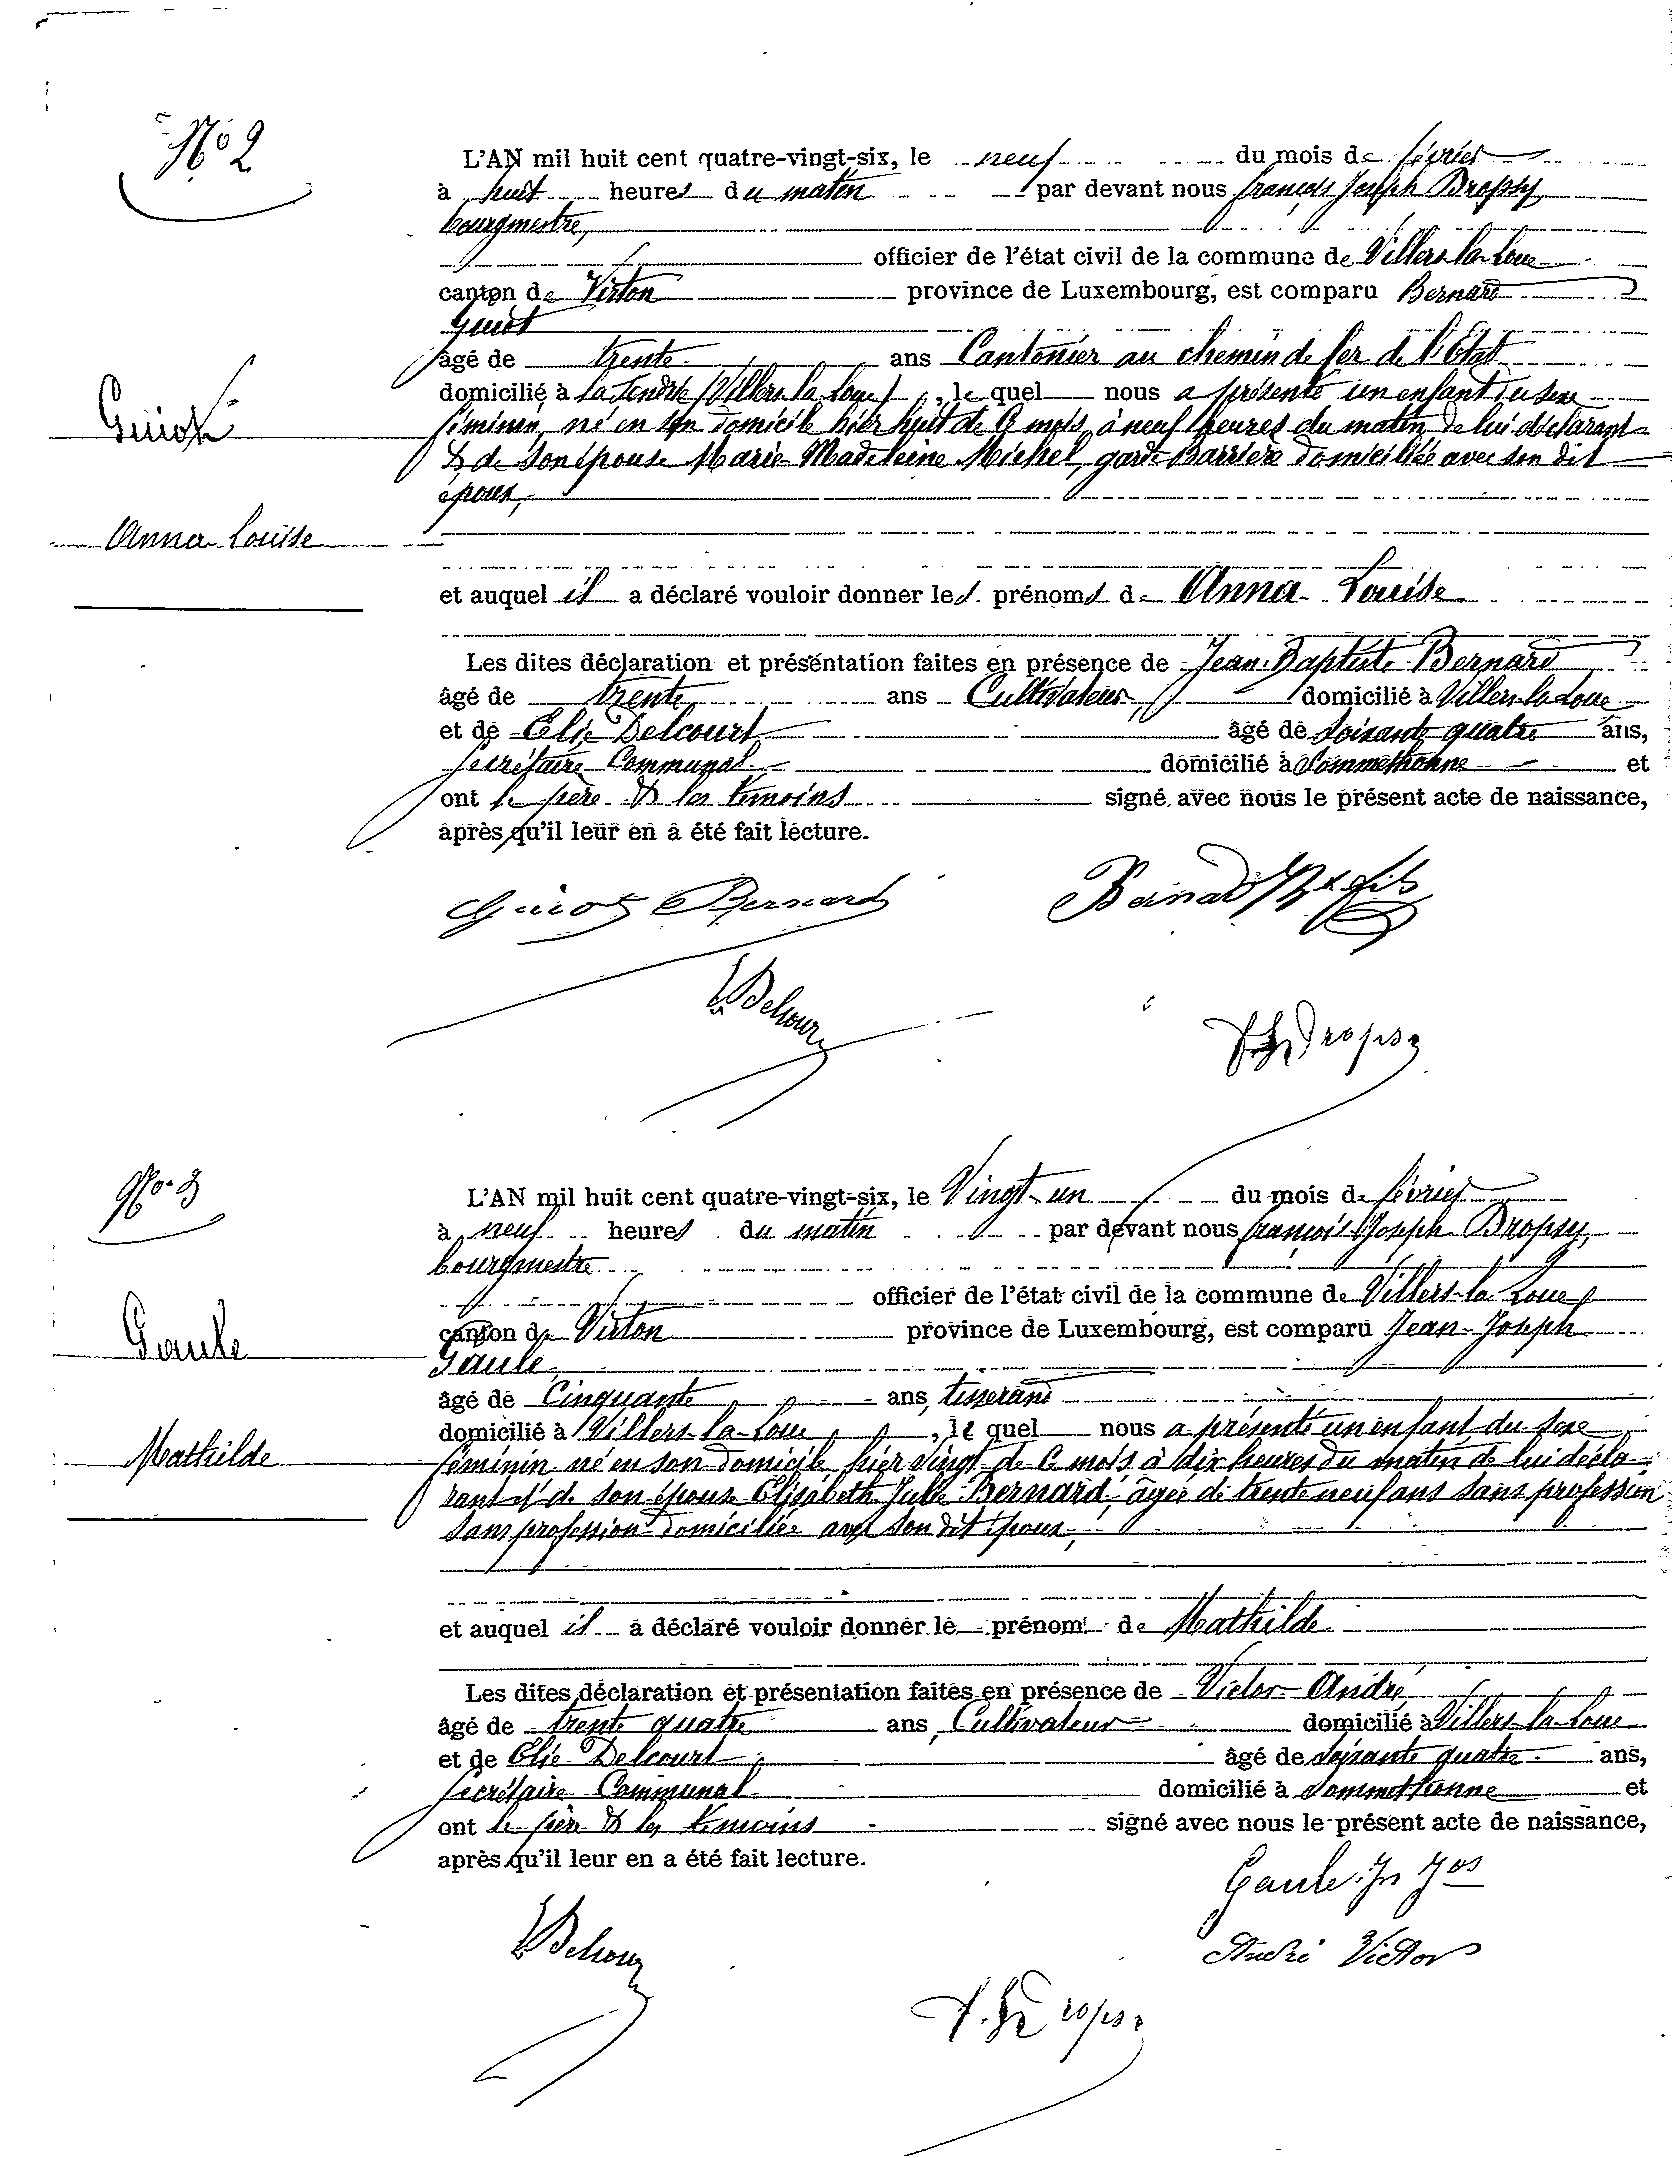 No 2
L'AN mil huit cent quatre-vingt-six, le neuf du mois de février
à huit heures du matin par devant nous françois Joseph Dropsy
bourgmestre,
officier de l'état civil de la commune de Villers-la-Loue
canton de Virton province de Luxembourg, est comparu Bernard
Guiot
âgé de trente ans Cantonier au chemin de fer de l'Etat
domicilié à (Villers la Loue), le quel nous a présenté un enfant du sexe
féminin, né en son domicile hier huit de ce mois, à neuf heures du matin, de lui déclarant
& de son épouse Marie Madeleine Michel, garde Barrière domiciliée avec son dit
époux,
Guiot
Anna Louise
et auquel il a déclaré vouloir donner les prénoms de Anna Louise
Les dites déclaration et présentation faites en présence de Jean-Baptiste Bernard
âgé de trente ans Cultivateur domicilié à Villers-la-Loue
et de Elie Delcourt âgé de soixante quatre ans,
secrétaire Communal domicilié à Sommethonne et
ont le père & les témoins signé avec nous le présent acte de naissance,
après qu'il leur en a été fait lecture.
Guiot Bernard
Bernard Bte fils
E Delcourt
F J Dropsy
No 3
L'AN mil huit cent quatre-vingt-six, le Vingt-un du mois de février
à neuf heures du matin par devant nous françois Joseph Dropsy,
bourgmestre
officier de l'état civil de la commune de Villers-la-Loue
canton de Virton province de Luxembourg, est comparu Jean-Joseph
Gaule
âgé de Cinquante ans, tisserand
domicilié à Villers-la-Loue, le quel nous a présenté un enfant du sexe
féminin né en son domicile hier vingt de ce mois à dix heures du matin de lui décla-
rant et de son épouse Elisabeth Julie Bernard, âgée de trente neuf ans sans profession
sans profession domiciliée avec son dit époux,
Gaule
Mathilde
et auquel il a déclaré vouloir donner le prénom de Mathilde
Les dites déclaration et présentation faites en présence de Victor André
âgé de trente quatre ans, Cultivateur domicilié à Villers-la-Loue
et de Elie Delcourt âgé de soixante quatre ans,
secrétaire Communal domicilié à Sommethonne et
ont le père & les témoins signé avec nous le présent acte de naissance,
après qu'il leur en a été fait lecture.
Gaule Jn Jos
E Delcourt
André Victor
F. J Dropsy